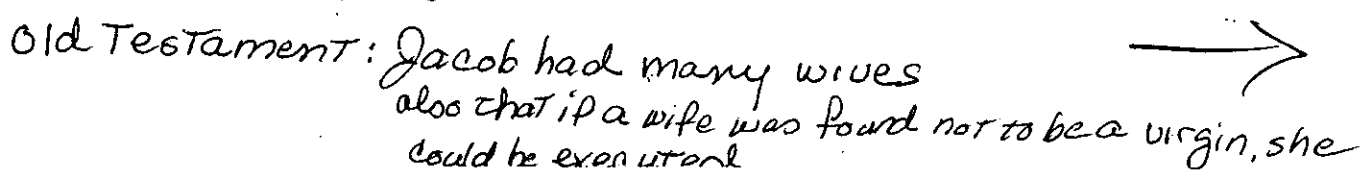 Old Testament: Jacob had many wives
also that if a wife was found not to be a virgin, she
could be executed